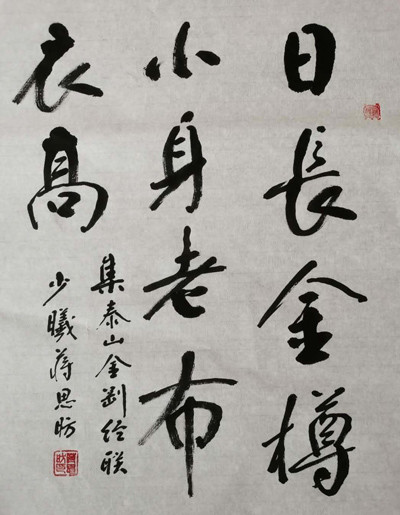 日長金樽
小身老布
衣高
集泰山金剛经联
少曦蒋思昉